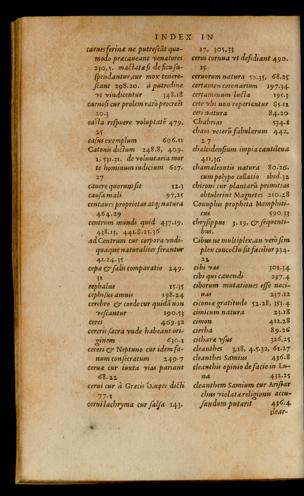 INDEX IN
carnes ferinæ ne putrescāt quo-
modo præcaueant venatores
230,5. mactatæ si de ficu su-
spendantur, cur mox tenere-
scant 298.20. à putredine
vt vindicentur 348.18
carnosi cur prolem rarò procreēt
20.3
casta respuere voluptatē 479.
25
casus exemplum 606.11
Catonis dictum 248.8. 409.
1. 531.31. de voluntaria mor
te hominum iudicium 627.
27
cauere quorum sit 12.3
causa mali 97.25
centaurus proprietas atq; natura
464.29
centrum mundi quid 437.19,
438.13. 441.8.21.36
ad Centrum cur corpora vndi-
quaque naturaliter ferantur
41.24.35
cepæ & salis comparatio 249.
31
cephalus 15.35
cephisus amnis 198.24
cerebro & corde cur quidā non
vescantur 190.53
ceres 469.32
cereris sacra vnde habeant ori-
ginem 630.2
cereri & Neptuno cur idem fa-
num consecratum 249.7
ceruæ cur iuxta vias pariant
68.22
cerui cur à Græcis dicti
77.1
cerui lachryma cur salsa 143.
17. 305.33
cerui coruua vt desidiant 490.
15
ceruorum natura 50.35, 68.25
certamen coronarium 197.34
certaminum lucta 195.3
cete vbi non reperientur 85.12
ceti natura 84.20
Chabrias 534.1
chaos veterū fabularum 442.
27
chalcidensium impia cantilena
411.36
chamæleontis natura 80.26,
cum polypo collatio ibid.32
chironi cur plantarū primitias
obtulerint Magnetes 210.28
Conuphis propheta Memphiti-
cus 590.33
chrysippus 3.19, & sequenti-
bus.
Cibus ne multiplex, an verò sim
plex concoctu sit facilior 234.
22
cibi vas 301.34
cibi qui cauendi 237.4
ciborum mutationes esse noci-
uas 237.12
ciconiæ gratitudo 52.28, 353.4
cimicum natura 23.18
cimon 412.28
circha 89.26
citharæ vsus 326.25
cleanthes 3.28, 4.5.32, 61.27
cleanthes Samius 436.8
cleanthis opinio de facie in Lu-
na 432.25
cleanthem Samium cur Aristar
chus violatæ religionis accu-
sandum putarit 436.4
clear-